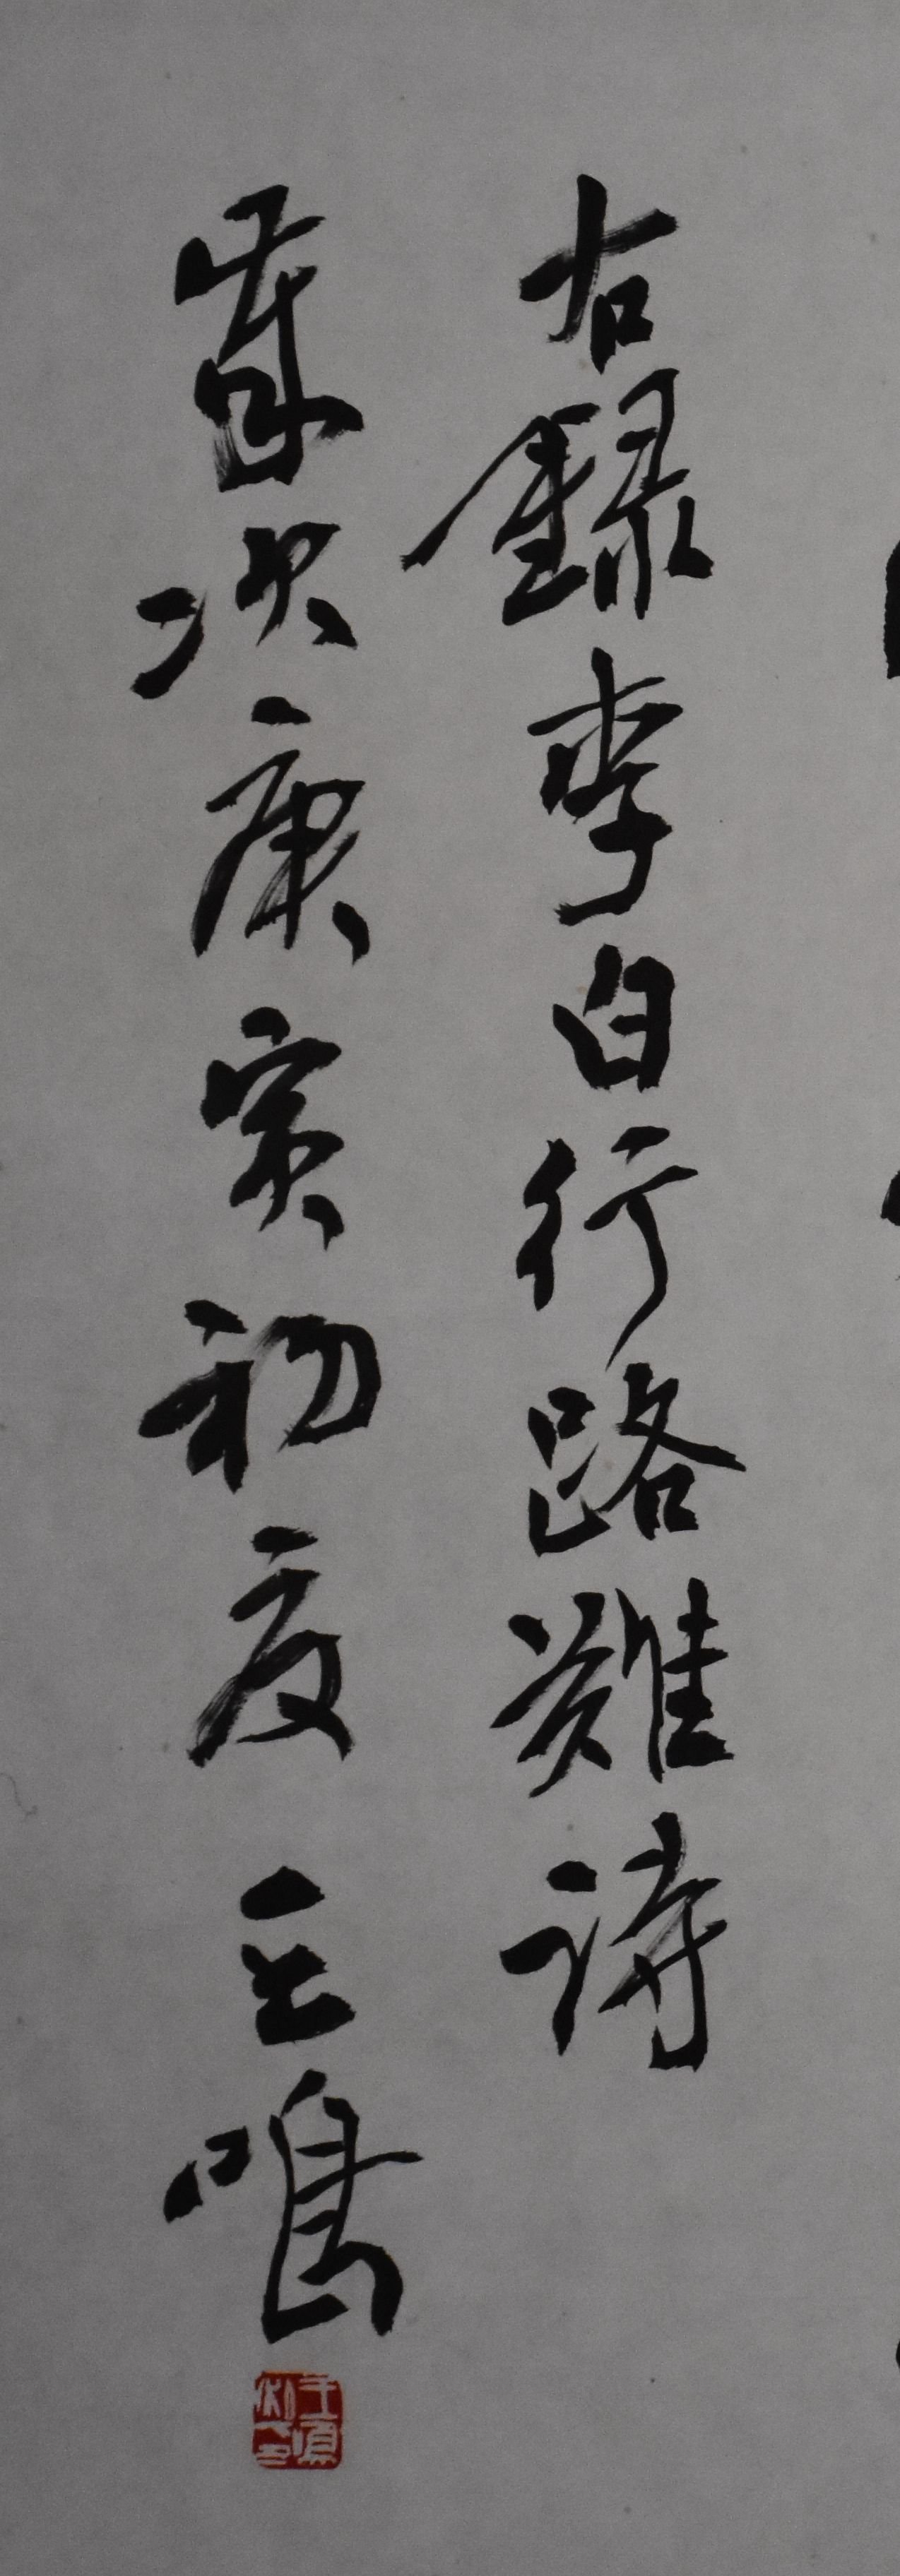 右録李白行路難詩
歲次庚寅初夏王鳴